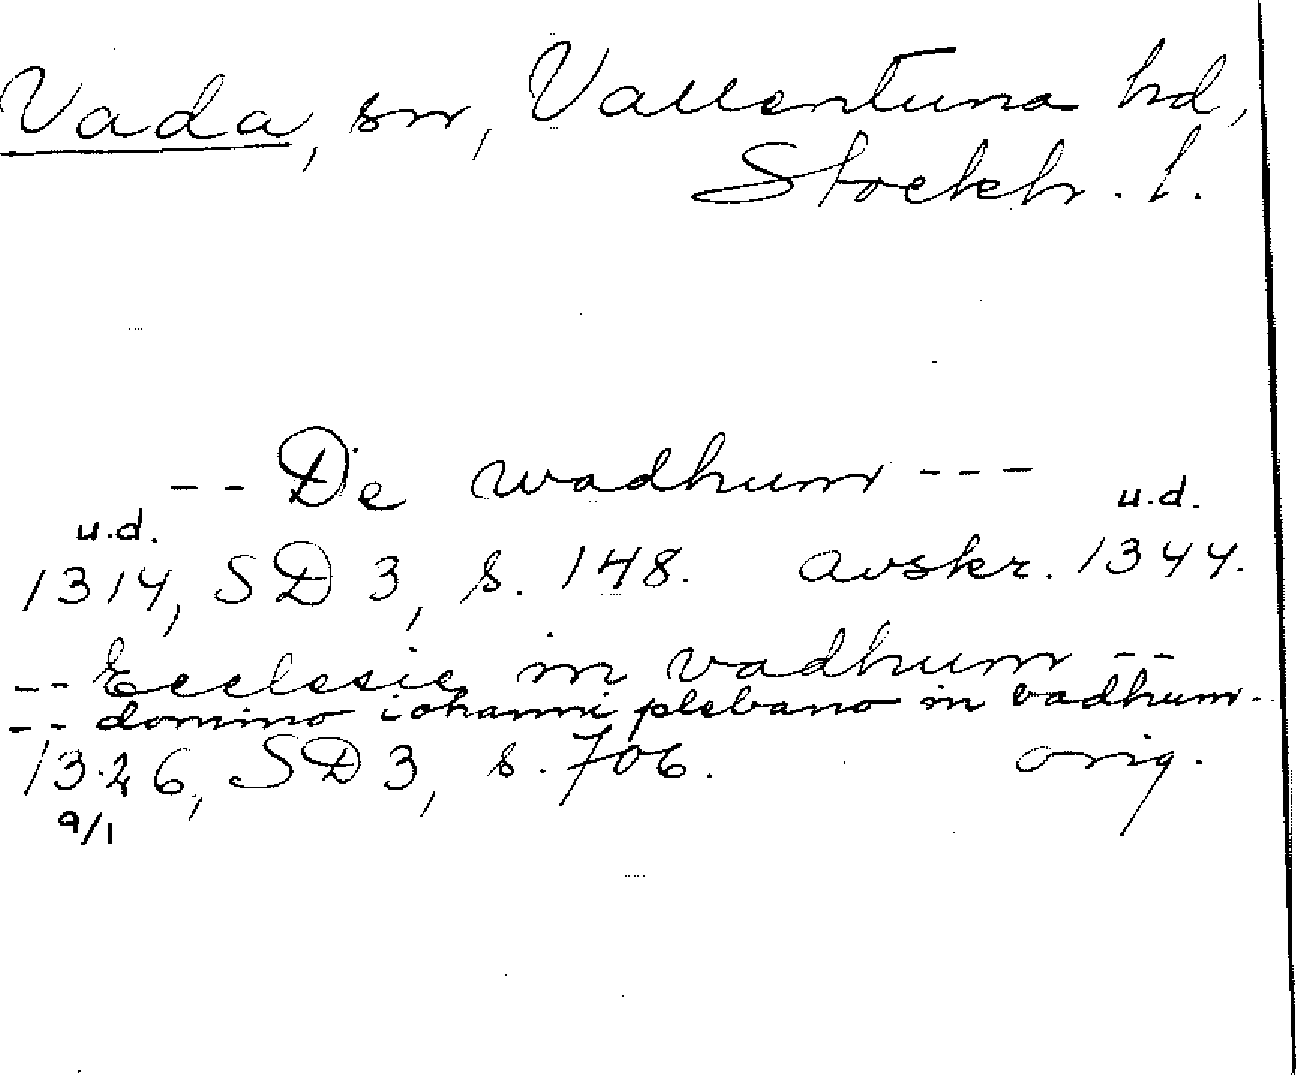 Vada, sn, Vallentuna hd,
Stockh. l.
-- De wadhum ---
u.d. u.d.
1314, SD 3, s. 148. avskr. 1344.
-- Ecclesie in vadhum --
-- domino iohanni plebano in vadhum -
1326, SD 3, s. 706. orig.
9/1